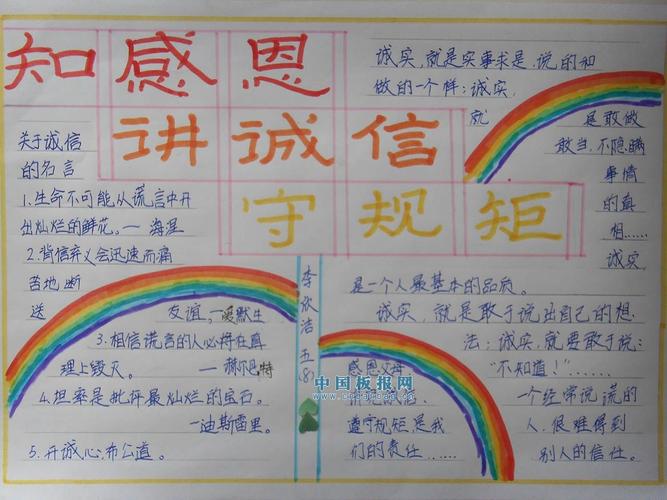 知感恩
讲诚信
守规矩
关于诚信
的名言
1.生命不可能从谎言中开
出灿烂的鲜花。— 海涅
2.背信弃义会迅速而痛
苦地断
送 友谊,—爱默生
3.相信谎言的人必将在真
理上毁灭。 — 赫尔巴特
4.坦率是批评最灿烂的宝石。
—迪斯雷里。
5.开诚心,布公道。
李欣浩 五(8)
诚实,就是实事求是,说的和
做的一个样;诚实,
就 是敢做
敢当,不隐瞒
事情
的真
相……
诚实
是一个人最基本的品质。
诚实,就是敢于说出自己的想
法;诚实,就要敢于说:
“不知道!”……
一个经常说谎的
人,很难得到
别人的信任。
感恩父母
遵守规矩是我
们的责任……
中国板报网